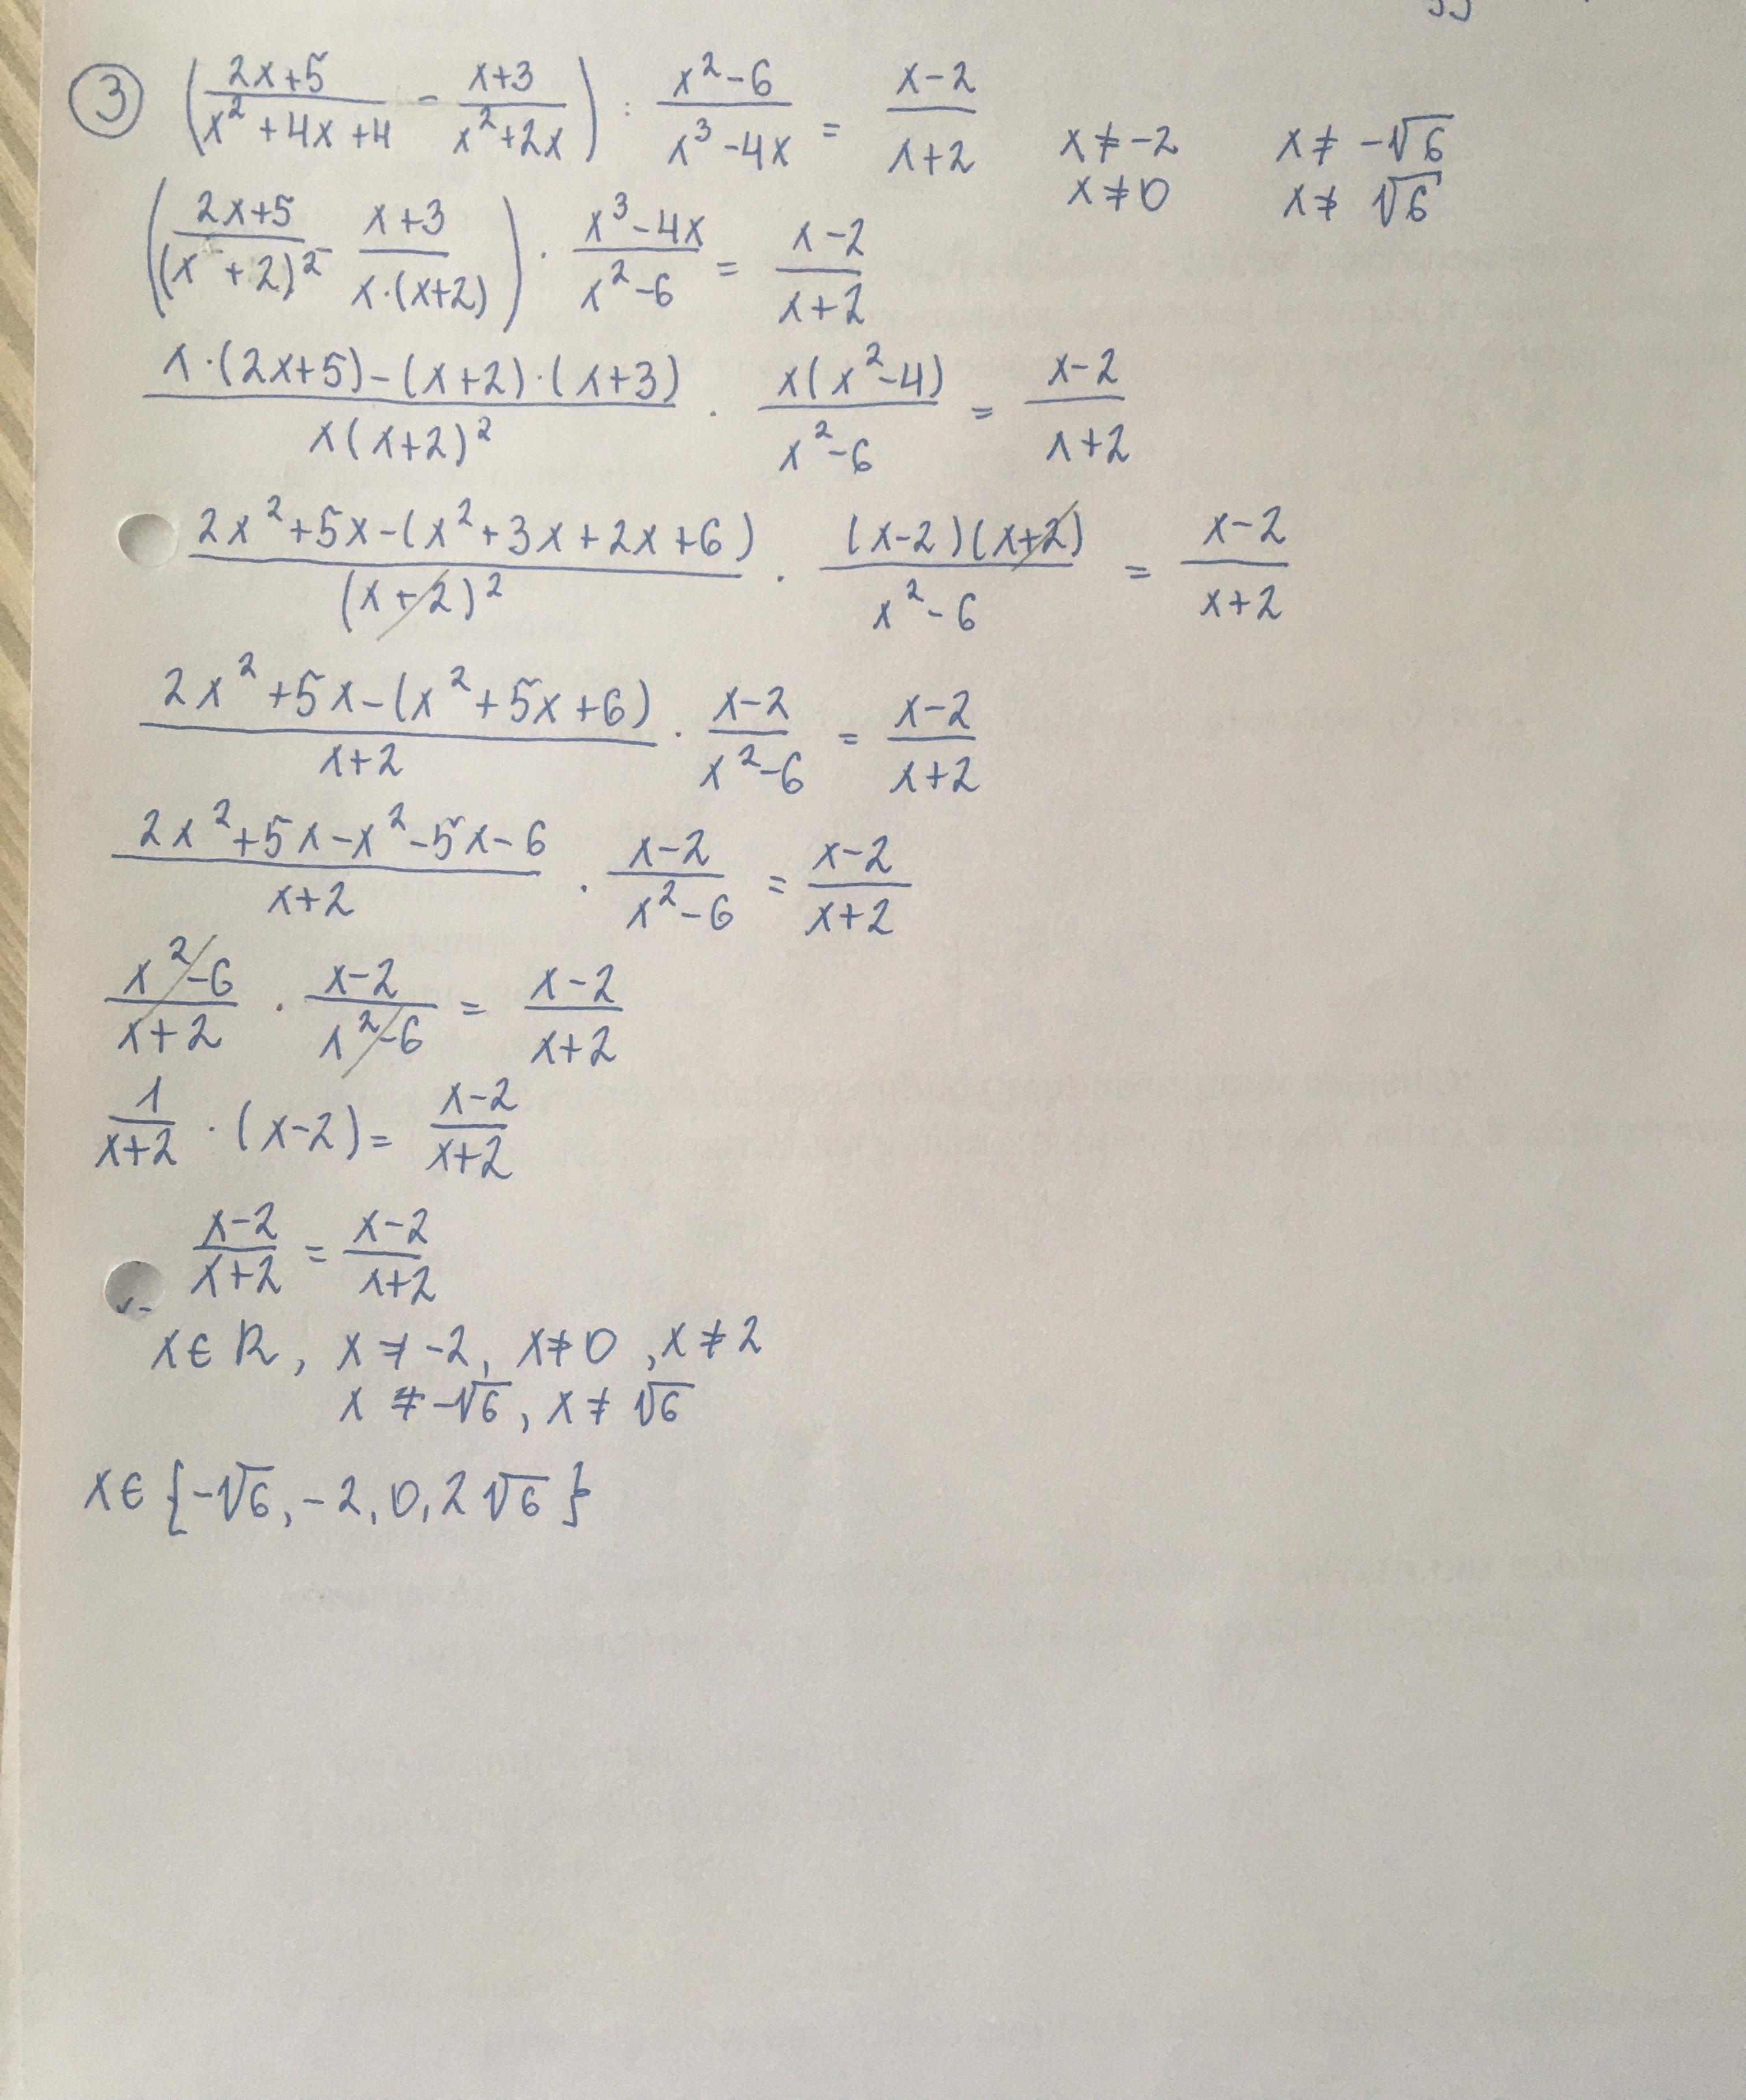 ③ ((2x+5)/(x²+4x+4) - (x+3)/(x²+2x)) : (x²-6)/(x³-4x) = (x-2)/(x+2) x≠-2 x≠-√6
x≠0 x≠√6
((2x+5)/(x+2)² - (x+3)/(x·(x+2))) · (x³-4x)/(x²-6) = (x-2)/(x+2)
(x·(2x+5)-(x+2)·(x+3))/(x(x+2)²) · (x(x²-4))/(x²-6) = (x-2)/(x+2)
(2x²+5x-(x²+3x+2x+6))/((x+2)²) · ((x-2)(x+2))/(x²-6) = (x-2)/(x+2)
(2x²+5x-(x²+5x+6))/(x+2) · (x-2)/(x²-6) = (x-2)/(x+2)
(2x²+5x-x²-5x-6)/(x+2) · (x-2)/(x²-6) = (x-2)/(x+2)
(x²-6)/(x+2) · (x-2)/(x²-6) = (x-2)/(x+2)
1/(x+2) · (x-2) = (x-2)/(x+2)
(x-2)/(x+2) = (x-2)/(x+2)
x∈R, x≠-2, x≠0, x≠2
x≠-√6, x≠√6
x∈{-√6, -2, 0, 2 √6}